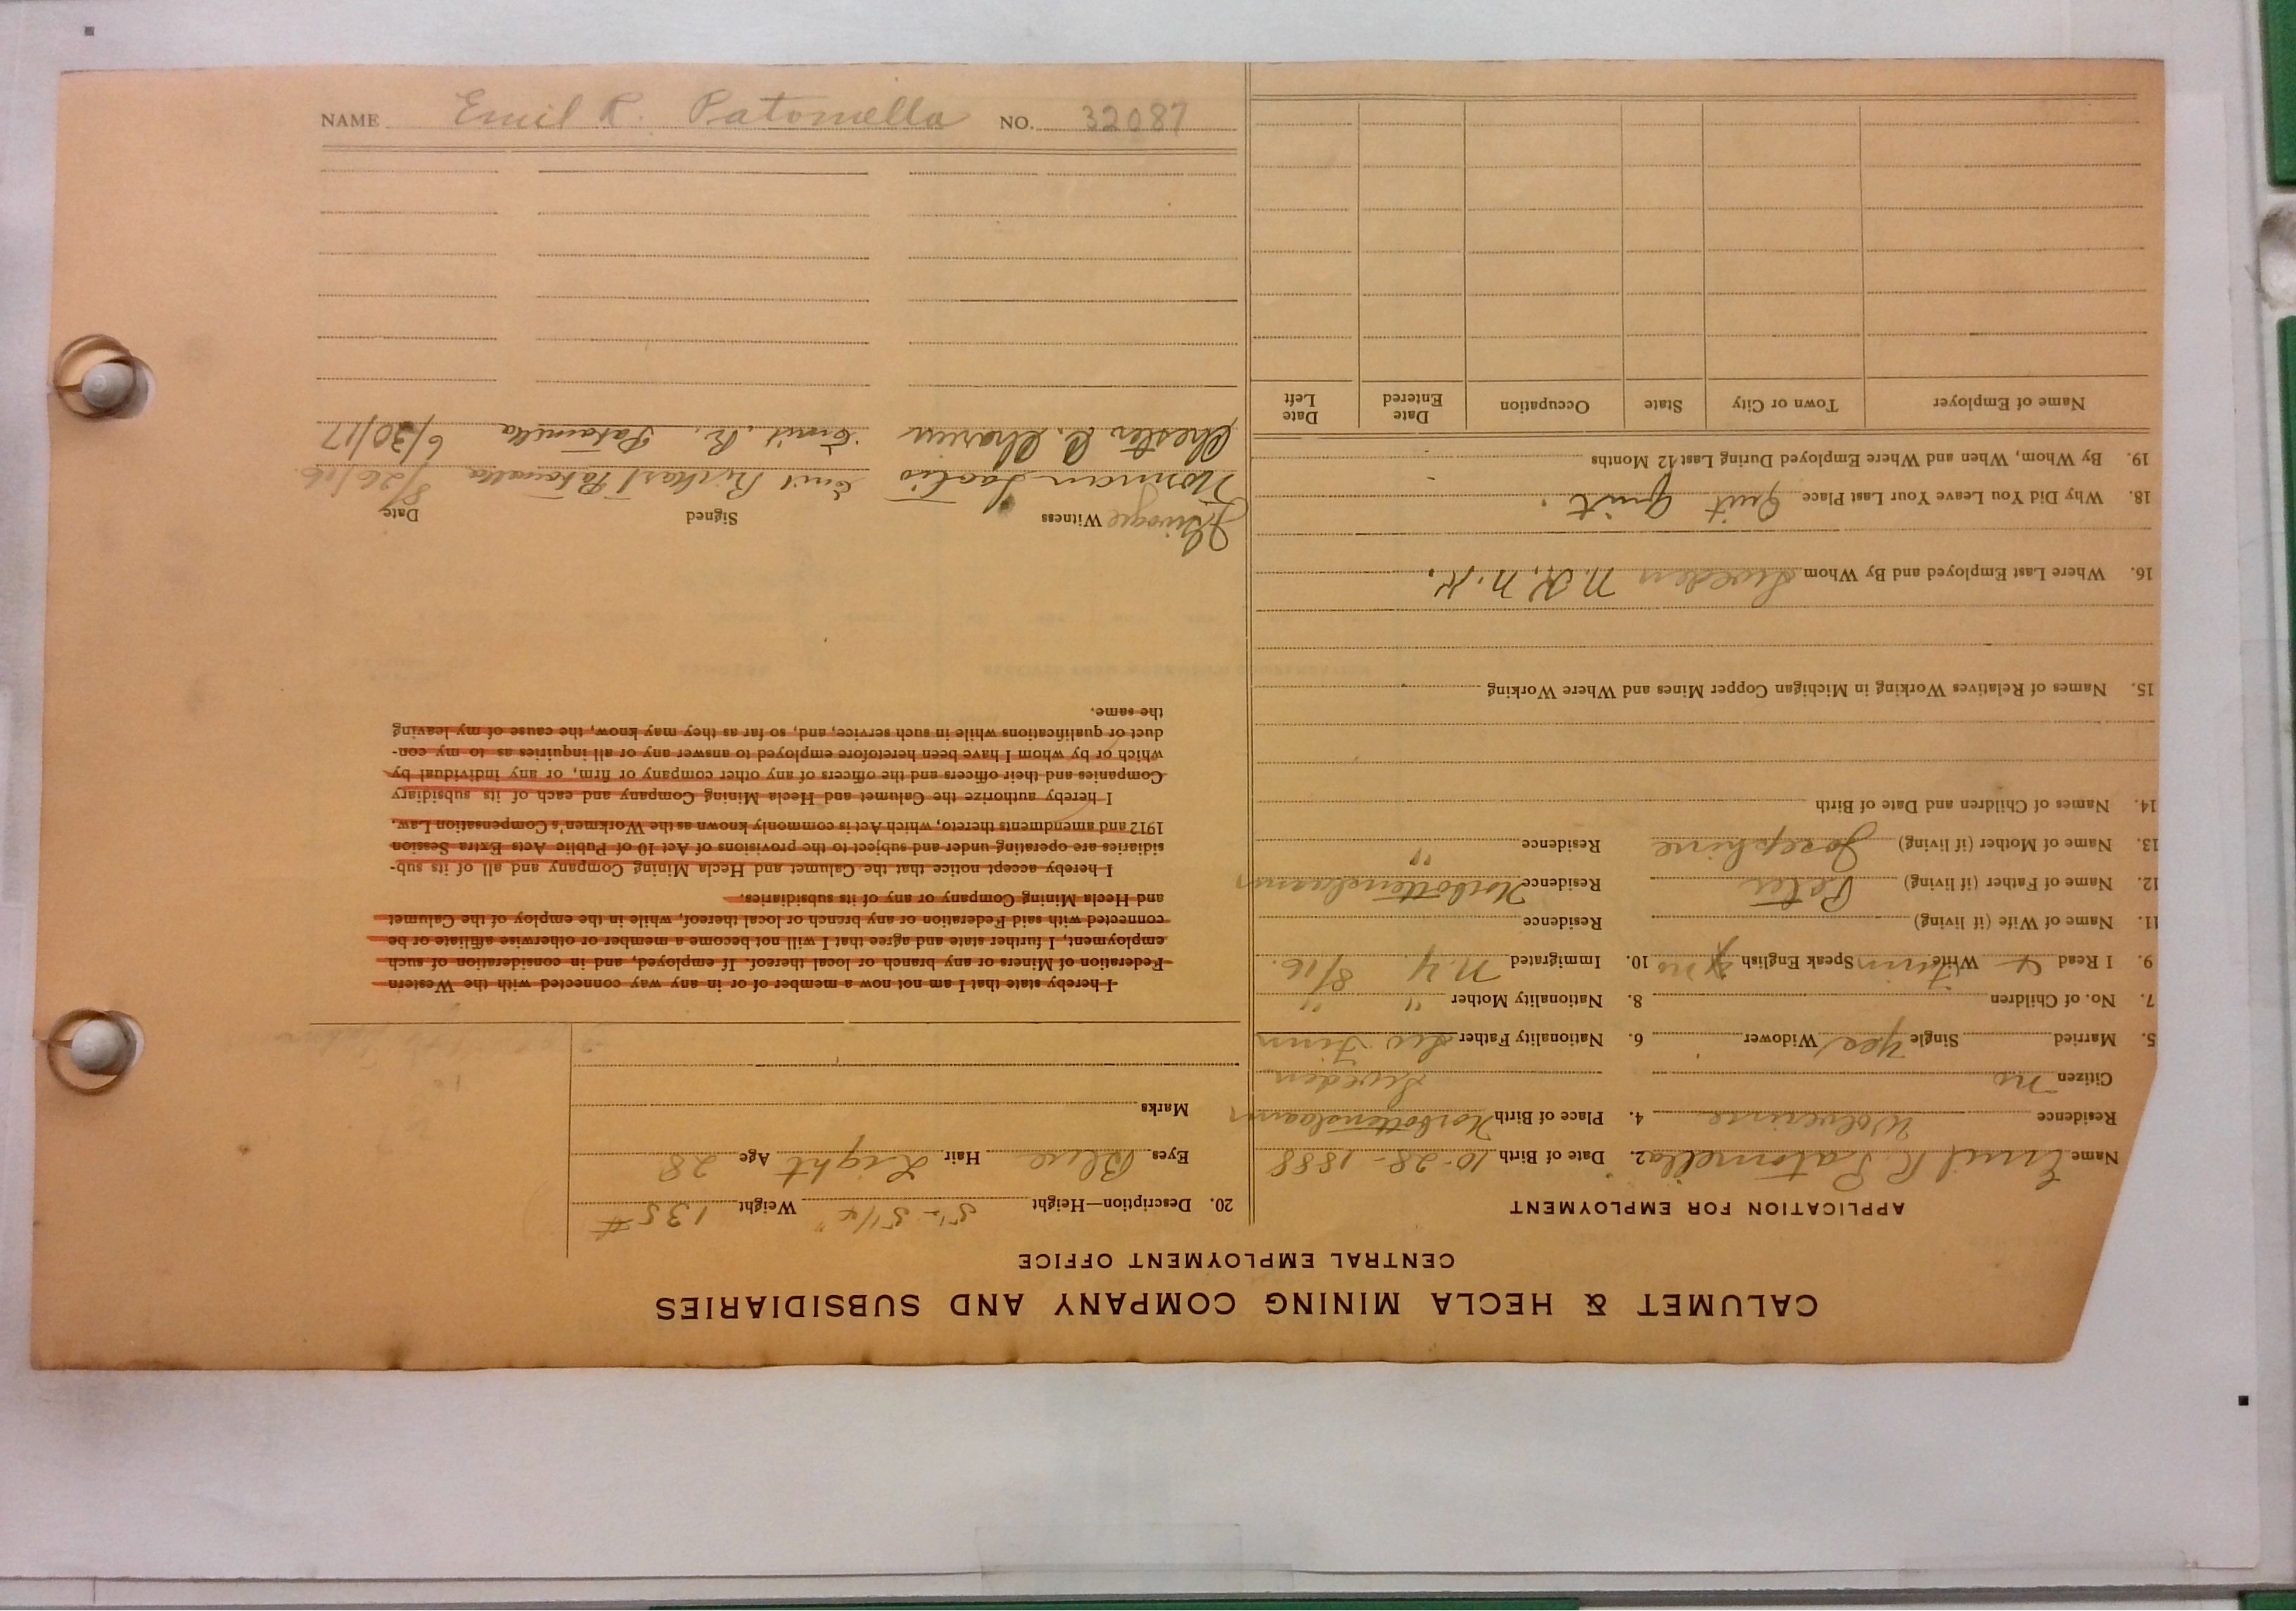 NAME Emil R. Patomella NO. 32087
CALUMET & HECLA MINING COMPANY AND SUBSIDIARIES
CENTRAL EMPLOYMENT OFFICE
APPLICATION FOR EMPLOYMENT
Name Emil R. Patomella 2. Date of Birth 10-28-1888
Residence Wolverine 4. Place of Birth Norbottenslaam
Citizen No Sweden
5. Married Single Yes Widower 6. Nationality Father Finn
7. No. of Children 8. Nationality Mother " "
9. I Read & Write Finn Speak English no 10. Immigrated N.Y. 8/16.
11. Name of Wife (if living) Residence
12. Name of Father (if living) Peter Residence Norbottenslaam
13. Name of Mother (if living) Josephine Residence "
14. Names of Children and Date of Birth
15. Names of Relatives Working in Michigan Copper Mines and Where Working
16. Where Last Employed and By Whom Sweden N.K. N.K.
18. Why Did You Leave Your Last Place Quit Quit
19. By Whom, When and Where Employed During Last 12 Months
Name of Employer Town or City State Occupation Date Entered Date Left
20. Description—Height 5'-5 1/4" Weight 135 #
Eyes Blue Hair Light Age 28
Marks
I hereby state that I am not now a member of or in any way connected with the Western
Federation of Miners or any branch or local thereof. If employed, and in consideration of such
employment, I further state and agree that I will not become a member or otherwise affiliate or be
connected with said Federation or any branch or local thereof, while in the employ of the Calumet
and Hecla Mining Company or any of its subsidiaries.
I hereby accept notice that the Calumet and Hecla Mining Company and all of its sub-
sidiaries are operating under and subject to the provisions of Act 10 of Public Acts Extra Session
1912 and amendments thereto, which Act is commonly known as the Workmen's Compensation Law.
I hereby authorize the Calumet and Hecla Mining Company and each of its subsidiary
Companies and their officers and the officers of any other company or firm, or any individual by
which or by whom I have been heretofore employed to answer any or all inquiries as to my con-
duct or qualifications while in such service, and, so far as they may know, the cause of my leaving
the same.
Witness Signed Date
Norman Emil Rickard Patomella 8/26/16
Chester Emil. R. Patomella 6/30/17